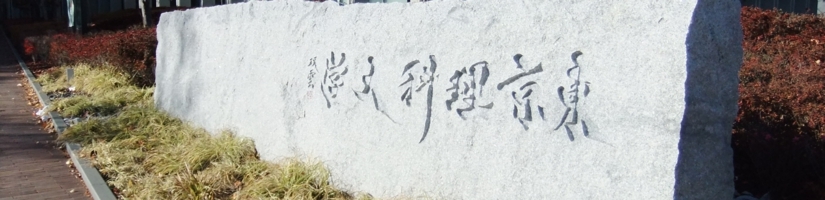 東京理科大学